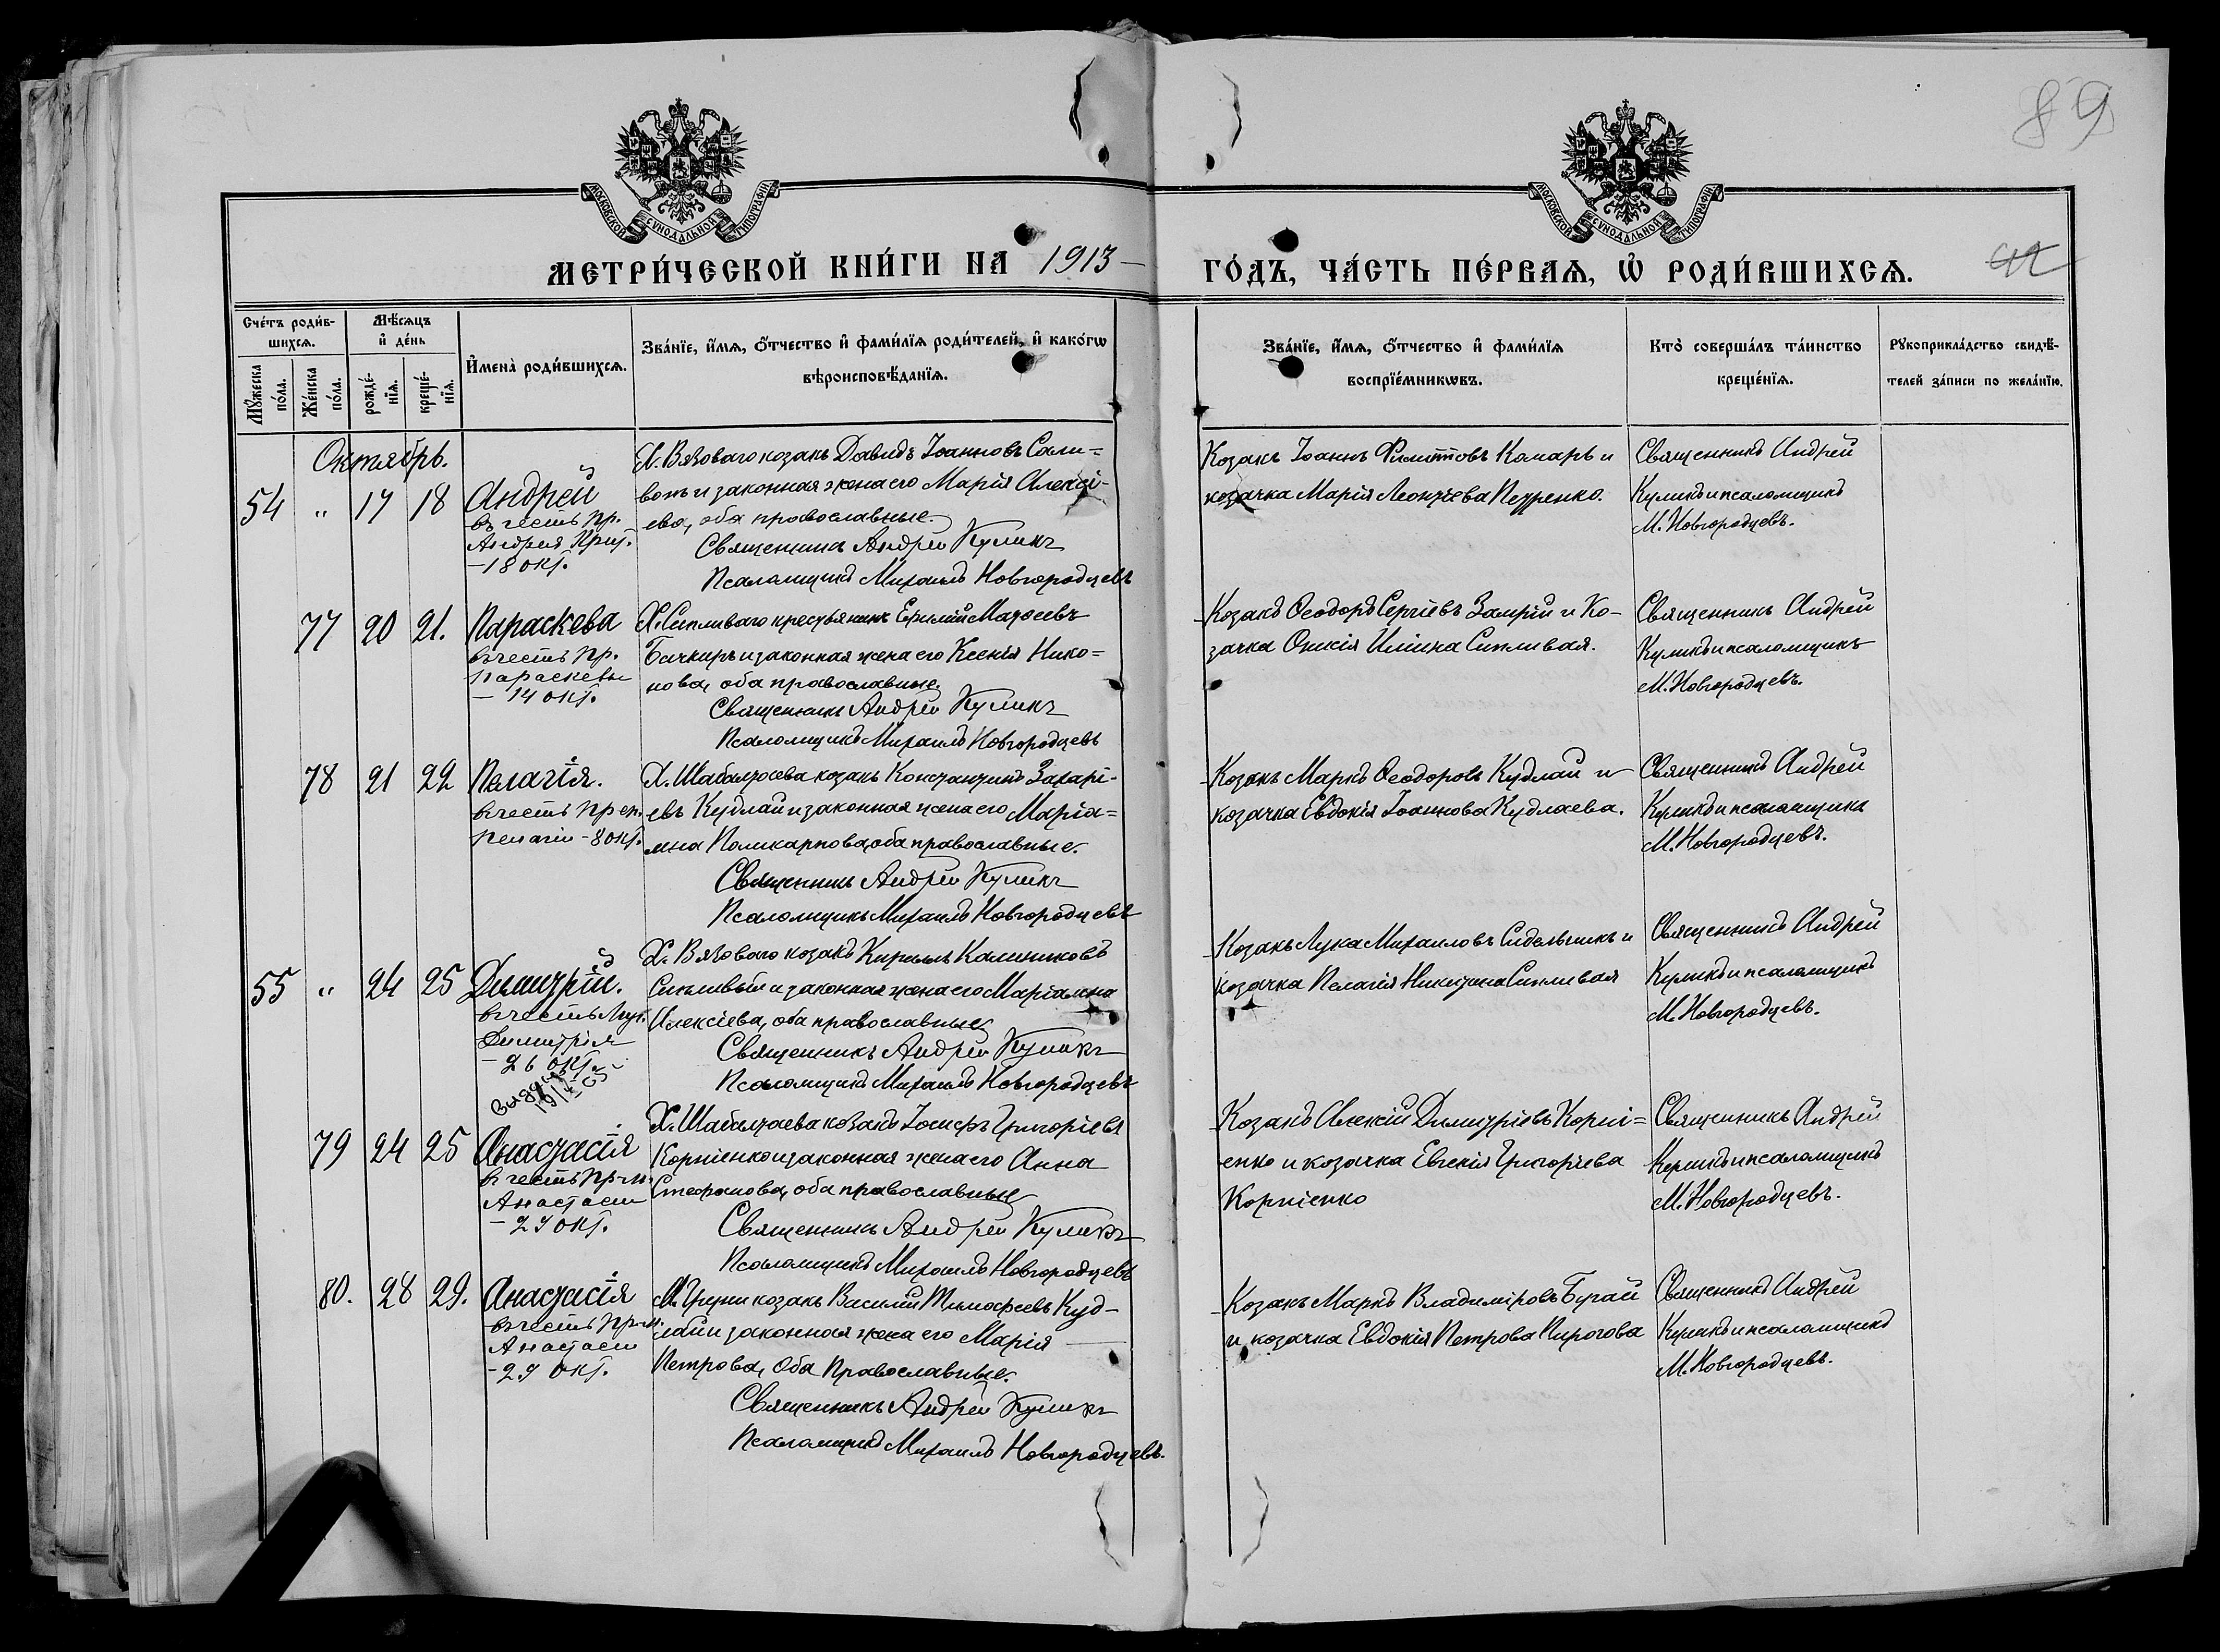 89
МОСКОВСКОЙ СѴНОДАЛЬНОЙ ТИПОГРАФІИ
МОСКОВСКОЙ СѴНОДАЛЬНОЙ ТИПОГРАФІИ
МЕТРИ́ЧЕСКОЙ КНИ́ГИ НА 1913 ГО́ДЪ, ЧА́СТЬ ПЕ́РВАѦ, Ѡ РОДИ́ВШИХСѦ.
Сче́тъ роди́в-
шихсѧ.
Мꙋ́жеска по́ла.
Же́нска по́ла.
Мѣ́сѧцъ и де́нь
рожде́-
нїѧ.
креще́-
нїѧ.
Имена̀ роди́вшихсѧ.
Зва́нїе, и́мѧ, о́тчество и фами́лїѧ роди́телей, и како́гѡ
вѣроисповѣ́данїѧ.
Зва́нїе, и́мѧ, о́тчество и фами́лїѧ
воспрїе́мникѡвъ.
Кто̀ соверша́лъ та́инство
креще́нїѧ.
Рꙋкоприкла́дство свидѣ́-
телей за́писи по жела́нїю.
Октябрь.
54 " 17 18 Андрей
въ честь пр.
Андрея Криц.
-18 окт.
Х. Вязоваго козакъ Давидъ Іоанновъ Сали-
вонъ и законная жена его Марія Алексі-
ева, оба православные.
Священникъ Андрей Куликъ
Псаломщикъ Михаилъ Новгородцевъ
Козакъ Іоаннъ Филипповъ Комаръ и
козачка Марія Леонтіева Петренко.
Священникъ Андрей
Куликъ и псаломщикъ
М. Новгородцевъ.
77 20 21. Параскева
въ честь пр.
Параскевы
- 14 окт.
Х. Сипливаго крестьянинъ Ефимій Матѳеевъ
Бачкиръ и законная жена его Ксенія Нико-
нова, оба православные.
Священникъ Андрей Куликъ
Псаломщикъ Михаилъ Новгородцевъ
Козакъ Ѳеодоръ Сергіевъ Замрій и Ко-
зачка Онисія Иліина Сипливая.
Священникъ Андрей
Куликъ и псаломщикъ
М. Новгородцевъ.
78 21 22 Пелагія.
въ честь преп.
Пелагіи - 8 окт.
Х. Шабалтаева козакъ Константинъ Захарі-
евъ Кудлай и законная жена его Маріа-
мна Поликарпова, оба православные.
Священникъ Андрей Куликъ
Псаломщикъ Михаилъ Новгородцевъ
Козакъ Маркъ Ѳеодоровъ Кудлай и
козачка Евдокія Іоаннова Кудлаева.
Священникъ Андрей
Куликъ и псаломщикъ
М. Новгородцевъ.
55 " 24 25 Димитрій.
въ честь Муч.
Димитрія
- 26 окт.
Х. Вязоваго козакъ Кириллъ Калиниковъ
Сипливый и законная жена его Маріамна
Алексіева, оба православные
Священникъ Андрей Куликъ
Псаломщикъ Михаилъ Новгородцевъ
Козакъ Лука Михаиловъ Сидельникъ и
козачка Пелагія Никитина Сипливая
Священникъ Андрей
Куликъ и псаломщикъ
М. Новгородцевъ.
79 24 25 Анастасія
въ честь пр-м.
Анастасіи
- 29 окт.
Х. Шабалтаева козакъ Іосифъ Григоріевъ
Корніенко и законная жена его Анна
Стефанова, оба православные
Священникъ Андрей Куликъ
Псаломщикъ Михаилъ Новгородцевъ
Козакъ Алексій Димитріевъ Корні-
енко и козачка Евгенія Григоріева
Корніенко
Священникъ Андрей
Куликъ и псаломщикъ
М. Новгородцевъ.
80. 28 29. Анастасія
въ честь пр-м.
Анастасіи
- 29 окт.
М. Груни козакъ Василій Тимофеевъ Куд-
лай и законная жена его Марія
Петрова, Оба Православные.
Священникъ Андрей Куликъ
Псаломщикъ Михаилъ Новгородцевъ.
Козакъ Маркъ Владиміровъ Бугай
и козачка Евдокія Петрова Пирогова
Священникъ Андрей
Куликъ и псаломщикъ
М. Новгородцевъ.